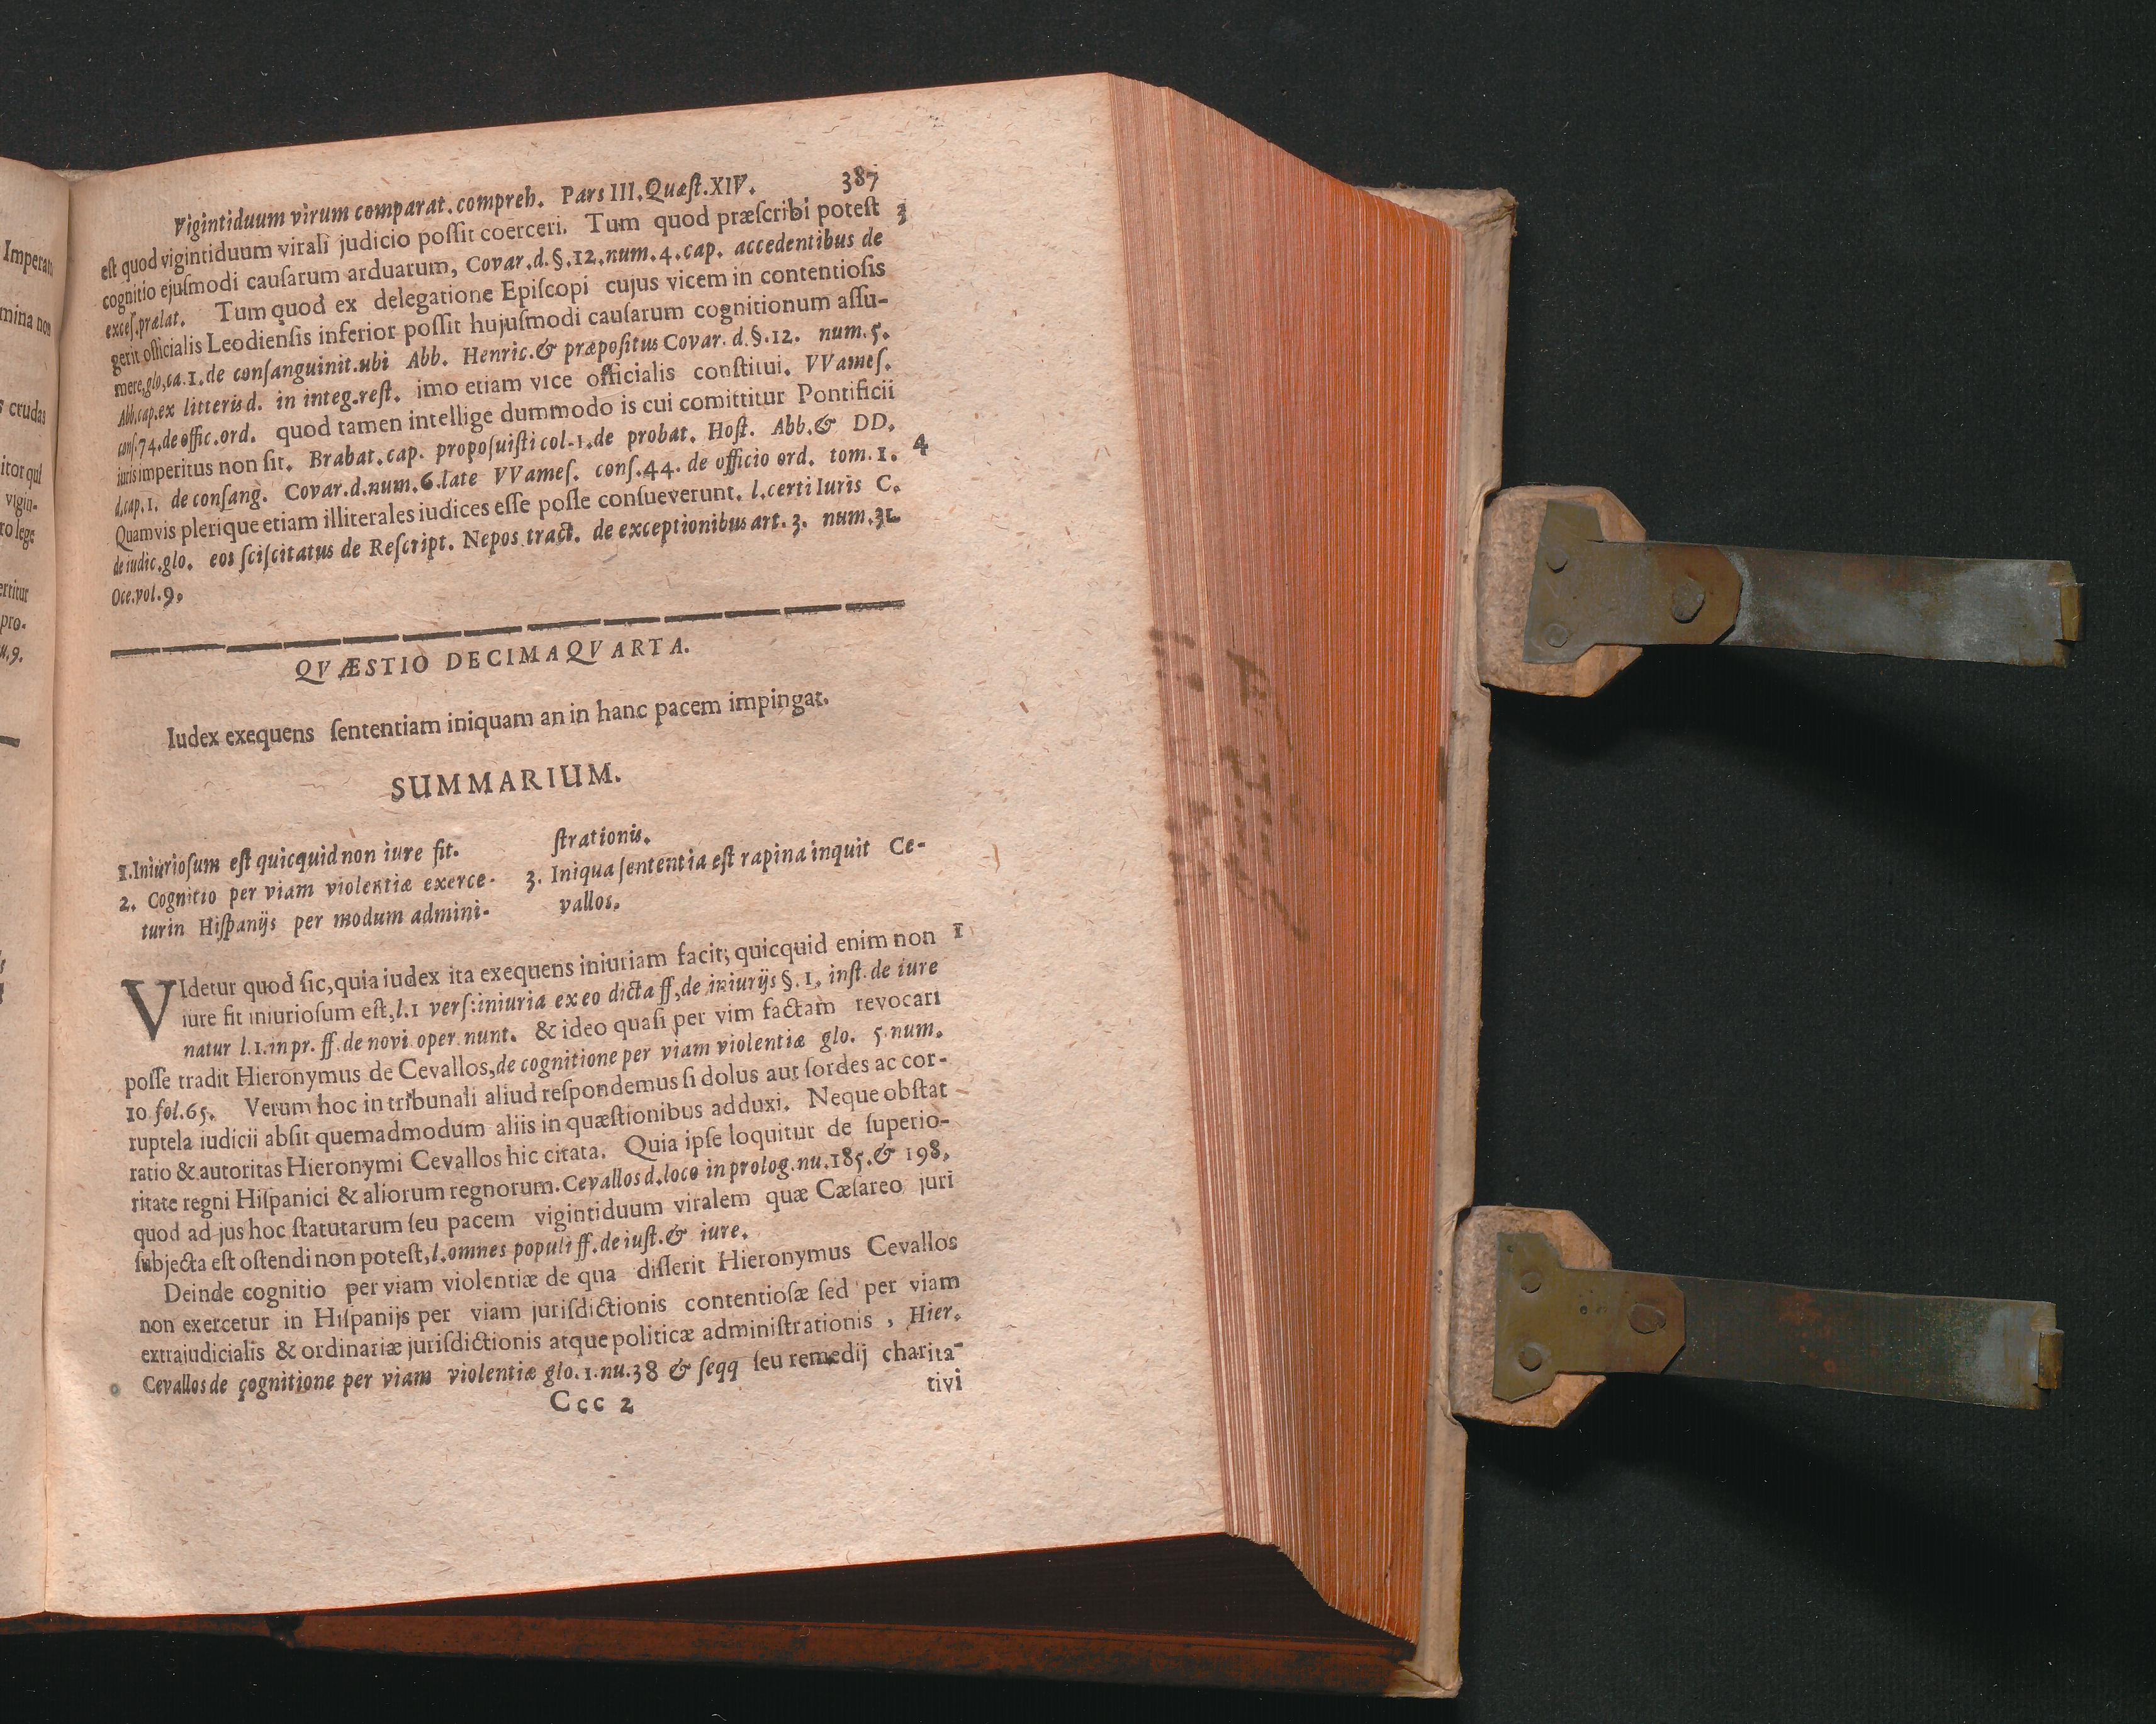 Imperat
mina non
s crudas
itor qui
vigin-
ro lege
ertitur
pro-
u.9.
Vigintiduum virum comparat.compreh. Pars III.Quæſt.XIV. 387
eſt quod vigintiduum virali judicio poſſit coerceri. Tum quod præſcribi poteſt 3
cognitio ejuſmodi cauſarum arduarum, Covar.d.§.12.num.4.cap. accedentibus de
exceſ.prælat. Tum quod ex delegatione Epiſcopi cujus vicem in contentioſis
gerit officialis Leodienſis inferior poſſit hujuſmodi cauſarum cognitionum aſſu-
mere,glo,ca.1.de conſanguinit.ubi Abb. Henric.& præpoſitus Covar. d.§.12. num.5.
Abb.cap.ex litteris d. in integ.reſt. imo etiam vice officialis conſtitui. VVameſ.
conſ.74.de offic.ord. quod tamen intellige dummodo is cui comittitur Pontificii
iuris imperitus non ſit. Brabat.cap. propoſuiſti col.1.de probat. Hoſt. Abb.& DD.
d.cap.1. de conſang. Covar.d.num.6.late VVameſ. conſ.44. de officio ord. tom.1. 4
Quamvis plerique etiam illiterales iudices eſſe poſſe conſueverunt. l.certi Iuris C.
de iudic.glo. eos ſciſcitatus de Reſcript. Nepos tract. de exceptionibus art.3. num.31.
Oce.vol.9.
QVÆSTIO DECIMAQVARTA.
Iudex exequens ſententiam iniquam an in hanc pacem impingat.
SUMMARIUM.
1.Iniurioſum eſt quicquid non iure fit.
2. Cognitio per viam violentiæ exerce-
tur in Hiſpanijs per modum admini-
ſtrationis.
3. Iniqua ſententia eſt rapina inquit Ce-
vallos.
VIdetur quod ſic,quia iudex ita exequens iniuriam facit; quicquid enim non 1
iure fit iniurioſum eſt,l.1 verſ:iniuria ex eo dicta ff,de iniurijs §.1. inſt.de iure
natur l.1.in pr. ff.de novi oper nunt. & ideo quaſi per vim factam revocari
poſſe tradit Hieronymus de Cevallos,de cognitione per viam violentiæ glo. 5.num.
10 fol.65. Verum hoc in tribunali aliud reſpondemus ſi dolus aut ſordes ac cor-
ruptela iudicii abſit quemadmodum aliis in quæſtionibus adduxi. Neque obſtat
ratio & autoritas Hieronymi Cevallos hic citata. Quia ipſe loquitur de ſuperio-
ritate regni Hiſpanici & aliorum regnorum.Cevallos d.loco in prolog.nu.185.& 198.
quod ad jus hoc ſtatutarum ſeu pacem vigintiduum viralem quæ Cæſareo juri
ſubjecta eſt oſtendi non poteſt,l.omnes populi ff.de iuſt.& iure.
Deinde cognitio per viam violentiæ de qua diſſerit Hieronymus Cevallos
non exercetur in Hiſpanijs per viam juriſdictionis contentioſæ ſed per viam
extrajudicialis & ordinariæ juriſdictionis atque politicæ adminiſtrationis , Hier.
Cevallos de cognitione per viam violentiæ glo.1.nu.38 & ſeqq ſeu remedij charita-
Ccc 2 tivi